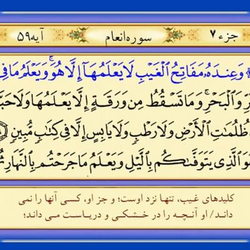 جزء ۷
سوره انعام
آیه ۵۹
وَعِندَهُ مَفَاتِحُ ٱلْغَيْبِ لَا يَعْلَمُهَآ إِلَّا هُوَ ۚ وَيَعْلَمُ مَا فِى
وَٱلْبَحْرِ ۚ وَمَا تَسْقُطُ مِن وَرَقَةٍ إِلَّا يَعْلَمُهَا وَلَا حَبَّةٍ
ظُلُمَٰتِ ٱلْأَرْضِ وَلَا رَطْبٍ وَلَا يَابِسٍ إِلَّا فِى كِتَٰبٍ مُّبِينٍ
وَهُوَ ٱلَّذِى يَتَوَفَّىٰكُم بِٱلَّيْلِ وَيَعْلَمُ مَا جَرَحْتُم بِٱلنَّهَارِ ثُمَّ
کلیدهای غیب، تنها نزد اوست؛ و جز او، کسی آنها را نمی
داند/ او آنچه را در خشکی و دریاست می داند؛